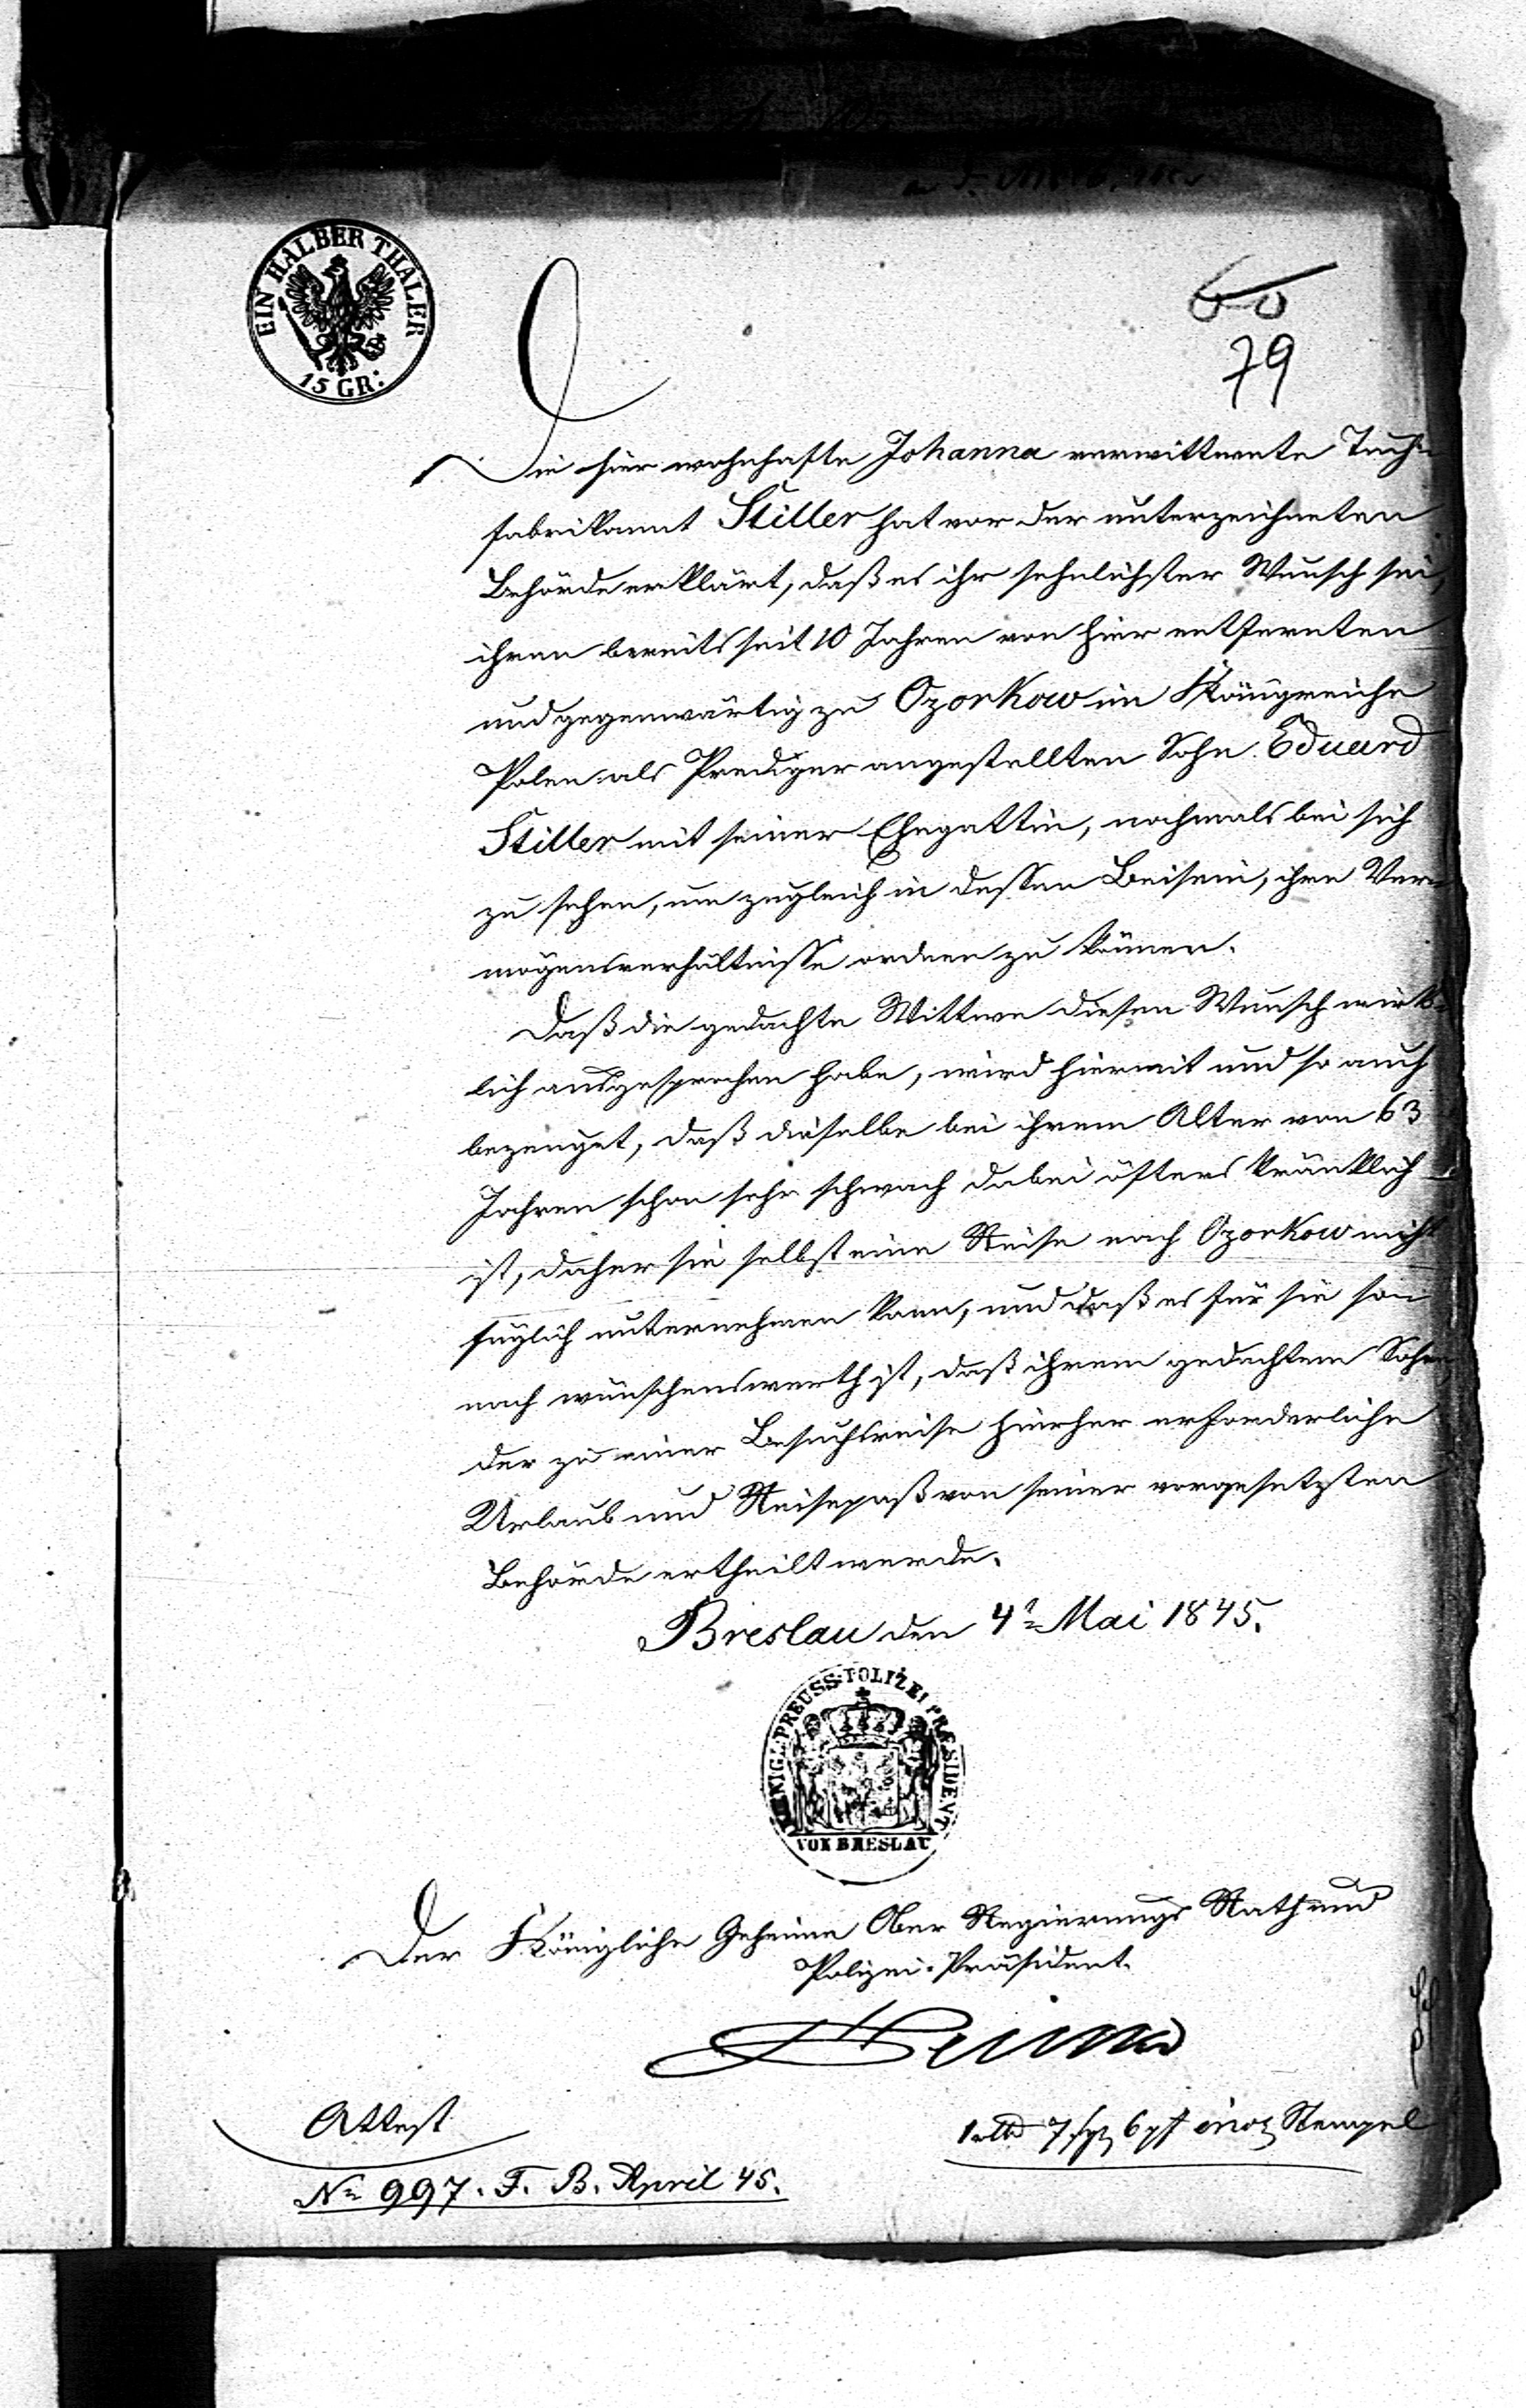 EIN HALBER THALER
15 GR:
60
79
Die hier wohnhafte Johanna verwittwete Tuch=
fabrikannt Stiller hat vor der unterzeichneten
Behörde erklärt, daß es ihr sehnlichster Wunsch sei,
ihren bereits seit 10 Jahren von hier entfernten
und gegenwärtig zu Ozorkow im Königreiche
Polen als Prediger angestellten Sohn Eduard
Stiller mit seiner Ehegattin, nochmals bei sich
zu sehen, um zugleich in dessen Beisein, ihre Ver=
mögensverhältnisse ordnen zu können.
Daß die gedachte Wittwe diesen Wunsch wirk=
lich ausgesprochen habe, wird hiermit und so auch
bezeuget, daß dieselbe bei ihrem Alter von 63
Jahren schon sehr schwach dabei öfters kränklich
ist, daher sie selbst eine Reise nach Ozorkow nicht
füglich unternehmen kann, und daß es für sie
nach wünschenswerth ist, daß ihrem gedachten Sohne,
der zu einer Besuchsreise hierher erforderliche
Urlaub und Reisepaß von seiner vorgesetzten
Behörde ertheilt werde.
Breslau den 4t Mai 1845.
KŒNIGL: PREUSS: POLIZEI PRÆSIDENT
VON BRESLAU
Der Königliche Geheime Ober Regierungs Rath und
Polizei-Präsident.
Attest
7 sg 6 pf Stempel
No 997. F. B. April 45.